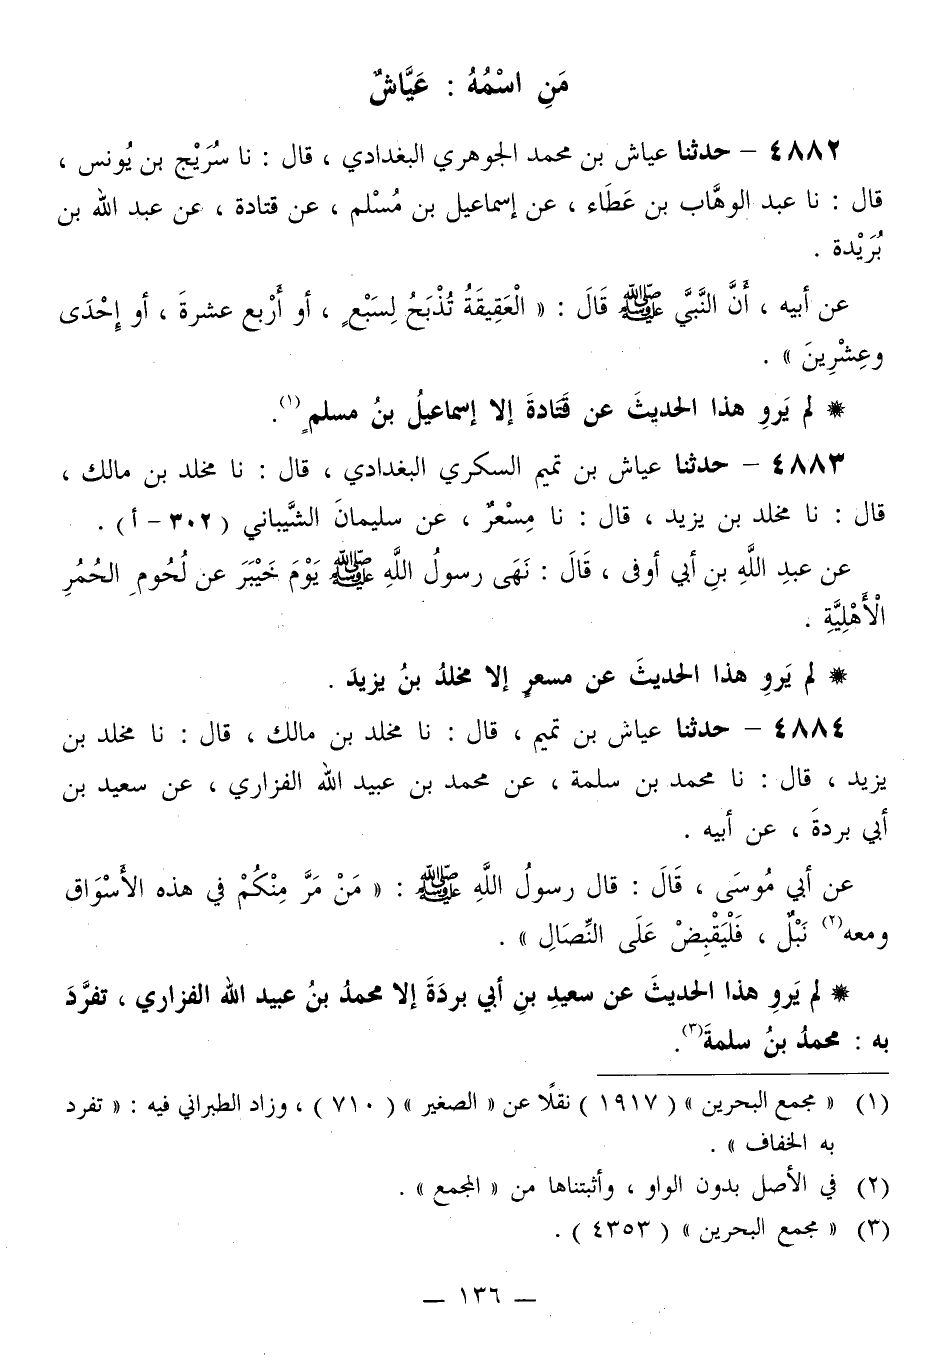 مَنِ اسْمُهُ : عَيَّاشٌ
٤٨٨٢ – حدثنا عياش بن محمد الجوهري البغدادي ، قال : نا سُرَيْج بن يُونس ،
قال : نا عبد الوهَّاب بن عَطَاء ، عن إسماعيل بن مُسْلم ، عن قتادة ، عن عبد الله بن
بُرَيْدة .
عن أبيه ، أَنَّ النَّبَّي ﷺ قَالَ : « الْعَقِيقَةُ تُذْبَحُ لِسَبْعٍ ، أو أَرْبع عشرةَ ، أو إِحْدَى
وعِشْرِينَ » .
* لم يَروِ هذا الحديثَ عن قَتَادةَ إلا إسماعيلُ بنُ مسلمٍ(١).
٤٨٨٣ – حدثنا عياش بن تميم السكري البغدادي ، قال : نا مخلد بن مالك ،
قال : نا مخلد بن يزيد ، قال : نا مِسْعرٌ ، عن سليمانَ الشَّيباني ( ٣٠٢ – أ ) .
عن عبدِ اللَّهِ بنِ أبي أوفى ، قَالَ : نَهَى رسولُ اللَّهِ ﷺ يَوْمَ خَيْبَرَ عن لُحُومِ الحُمُرِ
الْأَهْلِيَّةِ .
* لم يَروِ هذا الحديثَ عن مسعرٍ إلا مخلدُ بنُ يزيدَ .
٤٨٨٤ – حدثنا عياش بن تميم ، قال : نا مخلد بن مالك ، قال : نا مخلد بن
يزيد ، قال : نا محمد بن سلمة ، عن محمد بن عبيد الله الفزاري ، عن سعيد بن
أبي بردةَ ، عن أبيه .
عن أبي مُوسَى ، قَالَ : قال رسولُ اللَّهِ ﷺ : « مَنْ مَرَّ مِنْكُمْ في هذه الأَسْوَاق
ومعه(٢) نَبْلٌ ، فَلْيَقْبِضْ عَلَى النِّصَالِ » .
* لم يَروِ هذا الحديثَ عن سعيدِ بنِ أبي بردَةَ إلا محمدُ بنُ عبيد الله الفزاري ، تفرَّدَ
به : محمدُ بنُ سلمةَ(٣).
(١) « مجمع البحرين » ( ١٩١٧ ) نقلًا عن « الصغير » ( ٧١٠ ) ، وزاد الطبراني فيه : « تفرد
به الخفاف » .
(٢) في الأصل بدون الواو ، وأثبتناها من « المجمع » .
(٣) « مجمع البحرين » ( ٤٣٥٣ ) .
– ١٣٦ –